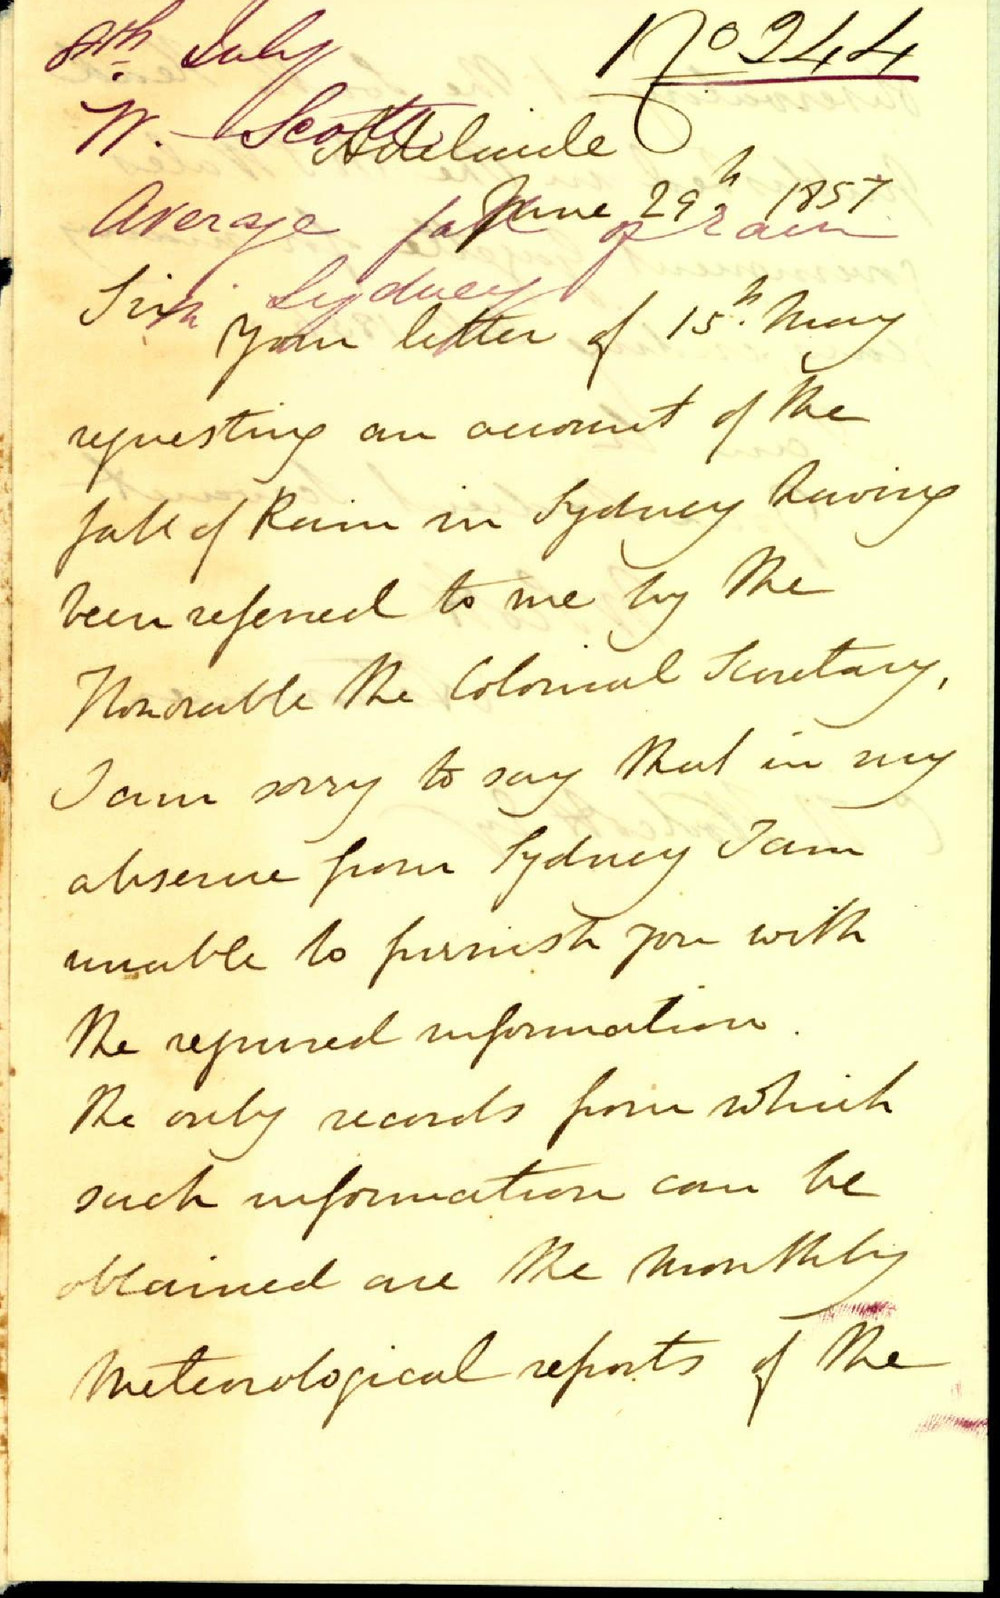 8th July
No 244
W. Scott
Adelaide
June 29h 1857
Average fall of rain
in Sydney
Sir
Your letter of 15h. May
requesting an account of the
fall of Rain in Sydney having
been referred to me by the
Honorable the Colonial Secretary,
I am sorry to say that in my
absence from Sydney I am
unable to furnish you with
the required information.
The only records from which
such information can be
obtained are the monthly
Meteorological reports of the